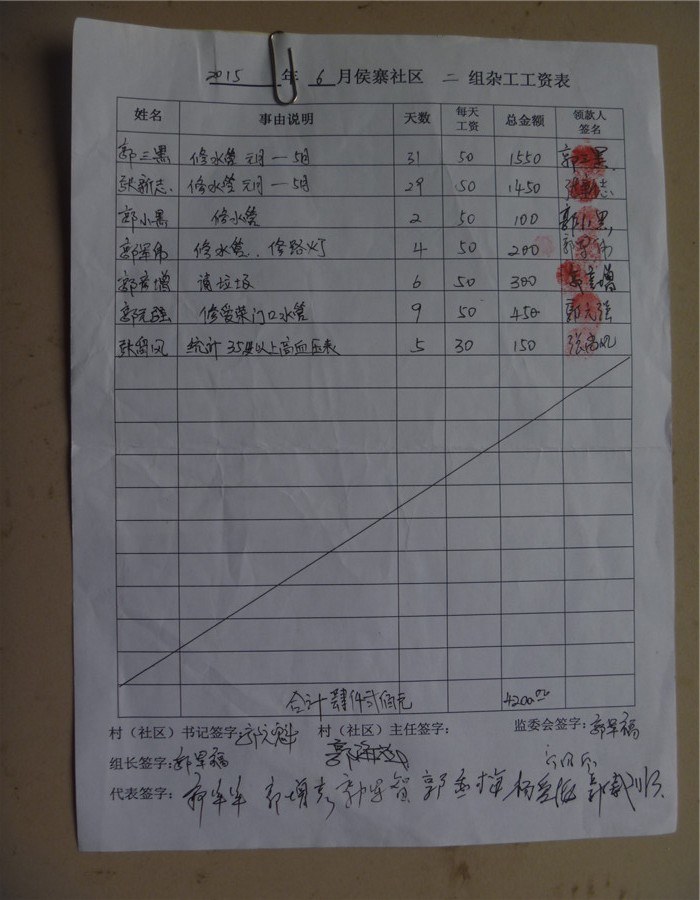 2015 年 6 月侯寨社区 二 组杂工工资表
姓名 事由说明 天数 每天工资 总金额 领款人签名
郭三黑 修水管 元月—5月 31 50 1550 郭三黑
张新志 修水管 元月—5月 29 50 1450 张新志
郭小黑 修水管 2 50 100 郭小黑
郭军伟 修水管、修路灯 4 50 200 郭军伟
清垃圾 6 50 300
郭元强 修爱荣门口水管 9 50 450 郭元强
统计35岁以上高血压表 5 30 150
合计肆仟贰佰元 4200.00
村（社区）书记签字: 村（社区）主任签字: 监委会签字: 郭军福
组长签字: 郭军福
代表签字: